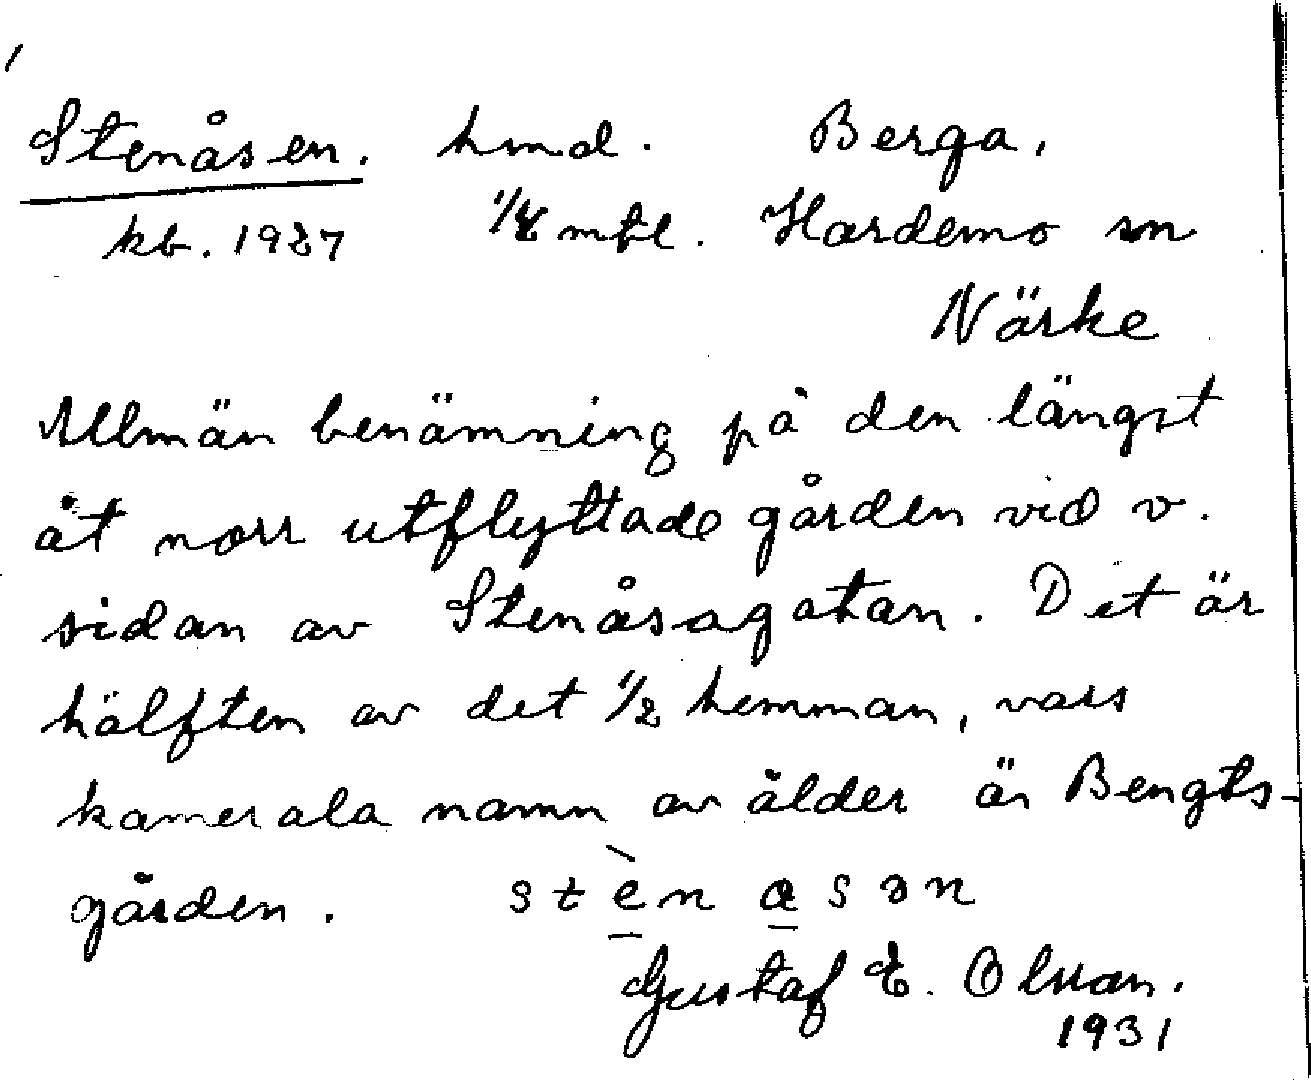 Stenåsen. hmd. Berga.
kb. 1927 1/4 mtl. Hardemo sn
Närke
Allmän benämning på den längst
åt norr utflyttade gården vid v.
sidan av Stenåsagatan. Det är
hälften av det 1/2 hemman, vars
kamerala namn av ålder är Bengts-
gården. stèn asən
Gustaf E. Olsson.
1931